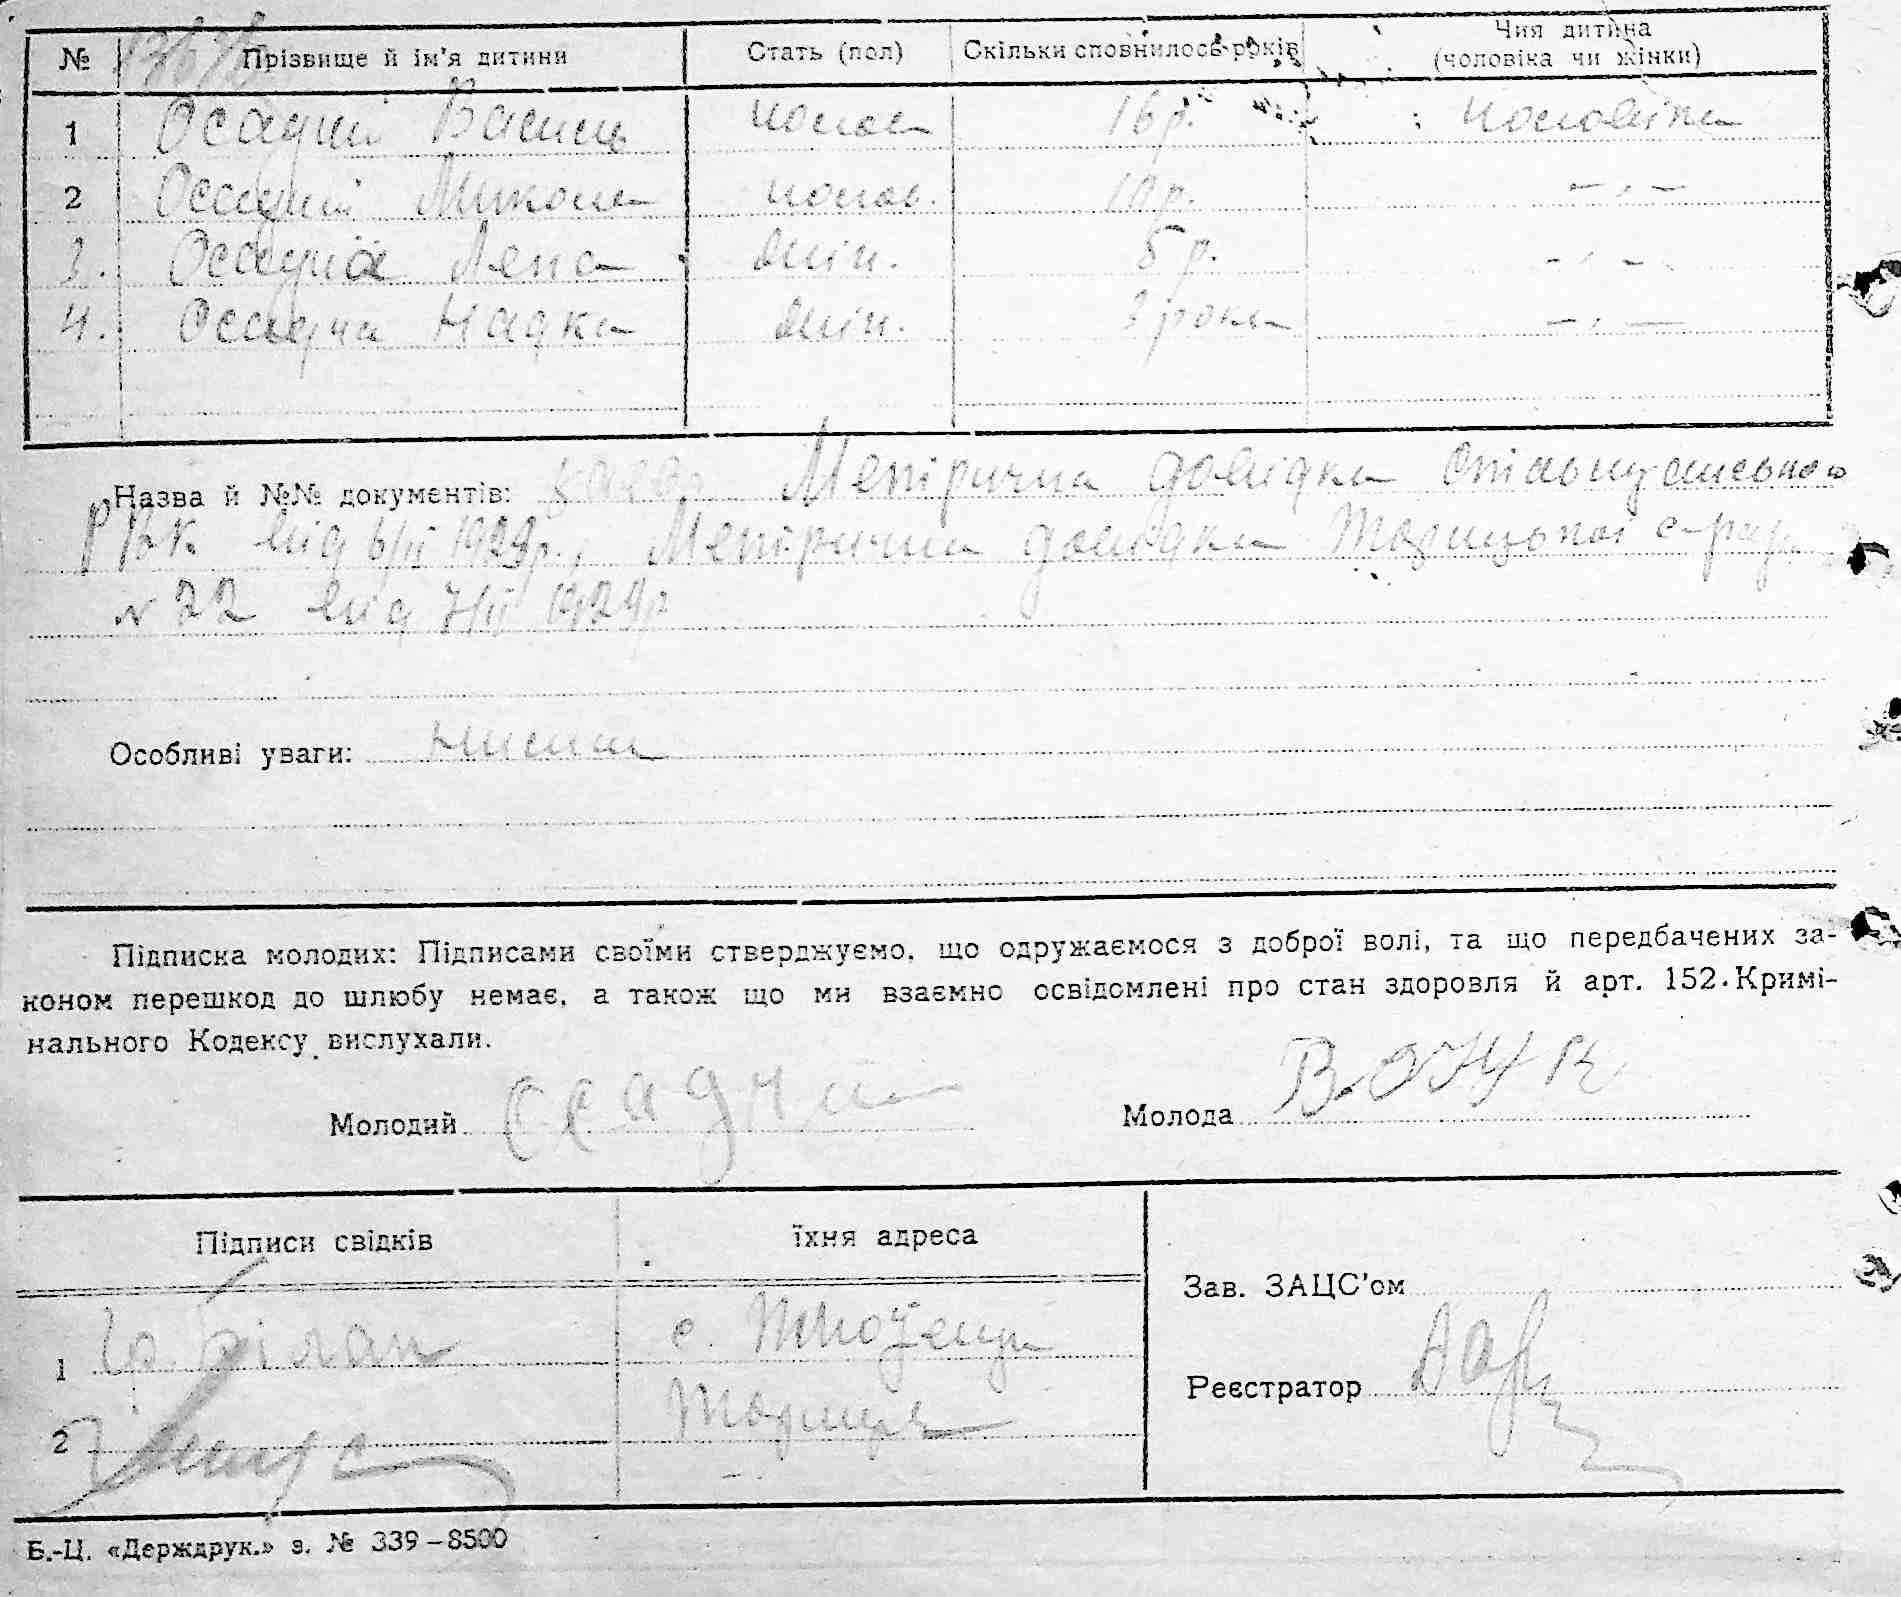 № Прізвище й ім'я дитини Стать (пол) Скільки сповнилось років Чия дитина (чоловіка чи жінки)
1 Осадчий Василь чолов 16 р. чоловіка
2 Осадчий Микола чолов. 10 р. — „ —
3. Осадча Лена жін. 5 р. — „ —
4. Осадча Надка жін. 3 роки — „ —
Назва й №№ документів: Метрична довідка
РВК від 6/II 1929 р., Метрична довідка Торицької с-ради
№ 22 від 7/II 1929 р
Особливі уваги:
Підписка молодих: Підписами своїми стверджуємо, що одружаємося з доброї волі, та що передбачених за-
коном перешкод до шлюбу немає, а також що ми взаємно освідомлені про стан здоровля й арт. 152. Кримі-
нального Кодексу вислухали.
Молодий Осадчий Молода Вовчук
Підписи свідків їхня адреса
Зав. ЗАЦС'ом
1 Білан с.
Реєстратор
2 Ториця
Б.-Ц. «Держдрук.» з. № 339–8500